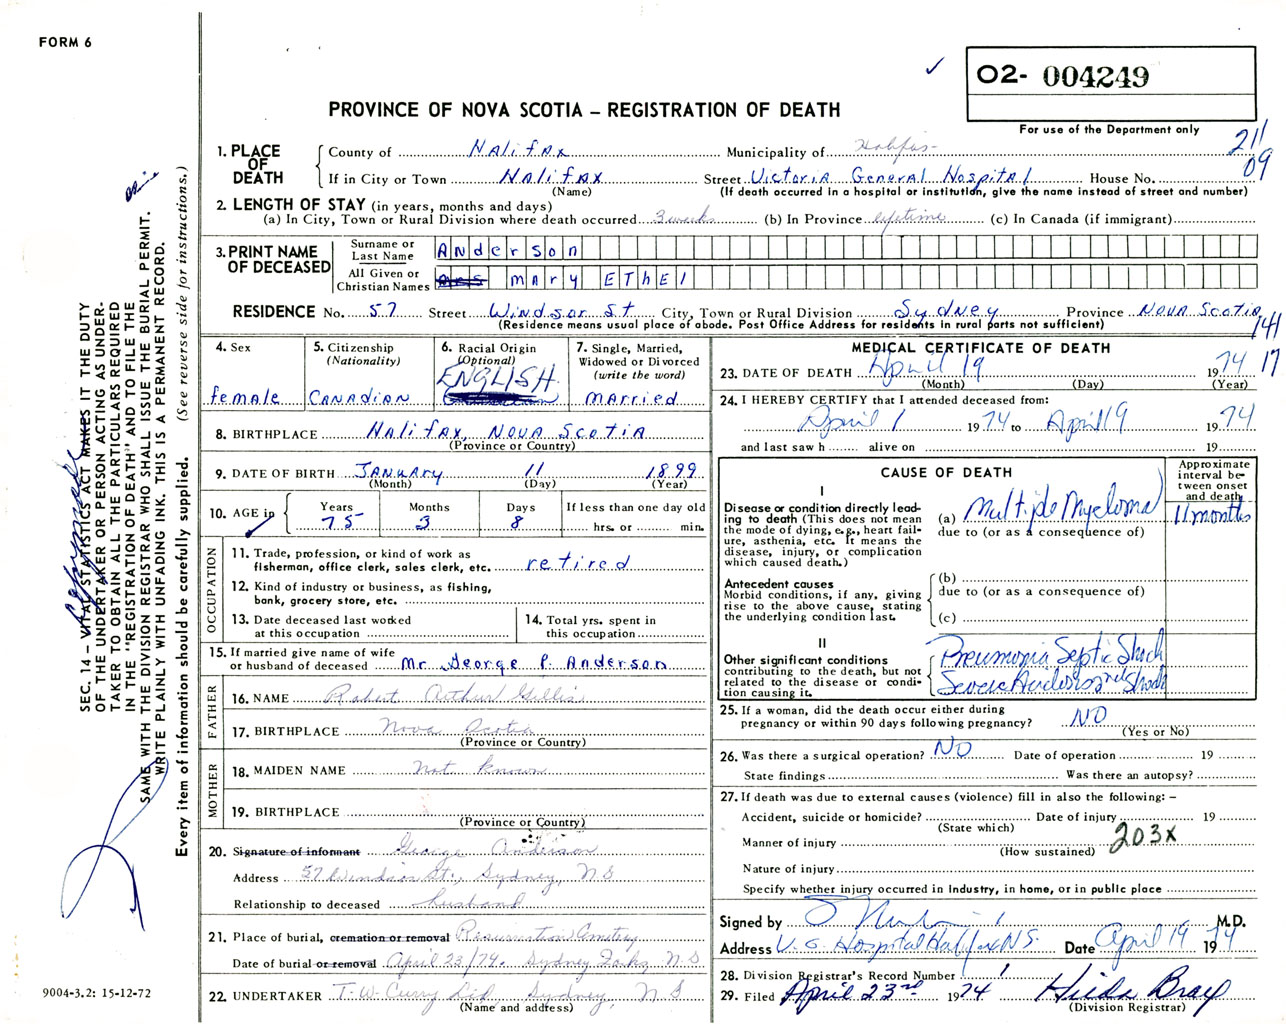 FORM 6
O2- 004249
PROVINCE OF NOVA SCOTIA – REGISTRATION OF DEATH
For use of the Department only
211
09
1. PLACE OF DEATH
County of Halifax Municipality of Halifax
If in City or Town Halifax Street Victoria General Hospital House No.
(Name) (If death occurred in a hospital or institution, give the name instead of street and number)
2. LENGTH OF STAY (in years, months and days)
(a) In City, Town or Rural Division where death occurred 3 weeks (b) In Province lifetime (c) In Canada (if immigrant)
3. PRINT NAME OF DECEASED
Surname or Last Name Anderson
All Given or Christian Names Mrs Mary Ethel
RESIDENCE No. 57 Street Windsor St City, Town or Rural Division Sydney Province Nova Scotia
(Residence means usual place of abode. Post Office Address for residents in rural parts not sufficient)
141
17
4. Sex
female
5. Citizenship (Nationality)
Canadian
6. Racial Origin (Optional)
ENGLISH
7. Single, Married, Widowed or Divorced (write the word)
married
8. BIRTHPLACE Halifax, Nova Scotia
(Province or Country)
9. DATE OF BIRTH January 11 1899
(Month) (Day) (Year)
10. AGE in Years Months Days If less than one day old
75 3 8 hrs. or min.
OCCUPATION
11. Trade, profession, or kind of work as fisherman, office clerk, sales clerk, etc. retired
12. Kind of industry or business, as fishing, bank, grocery store, etc.
13. Date deceased last worked at this occupation
14. Total yrs. spent in this occupation
15. If married give name of wife or husband of deceased Mr George P. Anderson
FATHER
16. NAME Robert Arthur Gillis
17. BIRTHPLACE Nova Scotia
(Province or Country)
MOTHER
18. MAIDEN NAME Not known
19. BIRTHPLACE
(Province or Country)
20. Signature of informant George Anderson
Address 57 Windsor St., Sydney, N S
Relationship to deceased husband
21. Place of burial, cremation or removal Resurrection Cemetery
Date of burial or removal April 23/74. Sydney Forks N S
22. UNDERTAKER T. W. Curry Ltd, Sydney, N S
(Name and address)
MEDICAL CERTIFICATE OF DEATH
23. DATE OF DEATH April 19 1974
(Month) (Day) (Year)
24. I HEREBY CERTIFY that I attended deceased from:
April 1 1974 to April 19 1974
and last saw h alive on 19
CAUSE OF DEATH
Approximate interval between onset and death
I
Disease or condition directly leading to death (This does not mean the mode of dying, e.g., heart failure, asthenia, etc. It means the disease, injury, or complication which caused death.)
(a) Multiple Myeloma 11 months
due to (or as a consequence of)
Antecedent causes
Morbid conditions, if any, giving rise to the above cause, stating the underlying condition last.
(b)
due to (or as a consequence of)
(c)
II
Other significant conditions contributing to the death, but not related to the disease or condition causing it.
Pneumonia Septic Shock
Severe Acidosis 2nd Shock
25. If a woman, did the death occur either during pregnancy or within 90 days following pregnancy? NO
(Yes or No)
26. Was there a surgical operation? NO Date of operation 19
State findings Was there an autopsy?
27. If death was due to external causes (violence) fill in also the following: –
Accident, suicide or homicide? Date of injury 19
(State which)
Manner of injury 203X
(How sustained)
Nature of injury
Specify whether injury occurred in Industry, in home, or in public place
Signed by M.D.
Address V. G. Hospital Halifax N.S. Date April 19 1974
28. Division Registrar's Record Number 1
29. Filed April 23rd 1974 Hilda Bray
(Division Registrar)
SEC. 14 – VITAL STATISTICS ACT MAKES IT THE DUTY
OF THE UNDERTAKER OR PERSON ACTING AS UNDER-
TAKER TO OBTAIN ALL THE PARTICULARS REQUIRED
IN THE "REGISTRATION OF DEATH" AND TO FILE THE
SAME WITH THE DIVISION REGISTRAR WHO SHALL ISSUE THE BURIAL PERMIT.
WRITE PLAINLY WITH UNFADING INK. THIS IS A PERMANENT RECORD.
Every item of information should be carefully supplied. (See reverse side for instructions.)
9004-3.2: 15-12-72